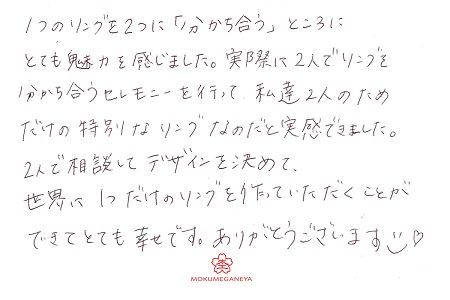 1つのリングを2つに「分かち合う」ところに
とても魅力を感じました。実際に2人でリングを
分かち合うセレモニーを行って、私達2人のため
だけの特別なリングなのだと実感できました。
2人で相談してデザインを決めて、
世界に1つだけのリングを作っていただくことが
できてとても幸せです。ありがとうございます
MOKUMEGANEYA